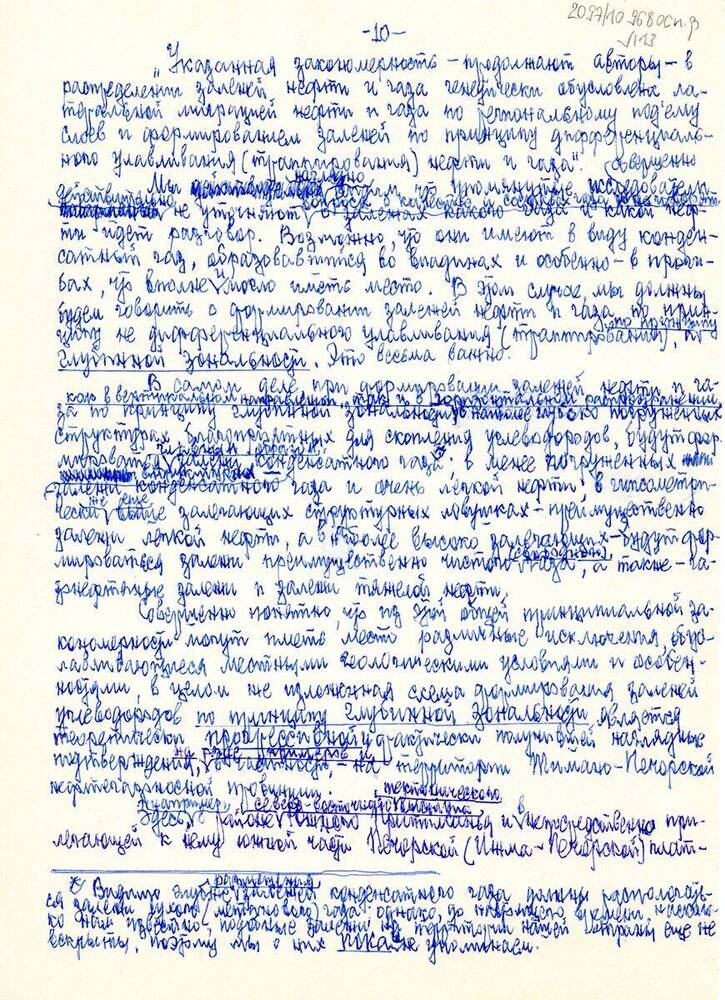 2097/10 968 Осн. ф
-10-
„Указанная закономерность – продолжают авторы – в
распределении залежей нефти и газа генетически обусловлена ла-
теральной миграцией нефти и газа по региональному под'ему
слоев и формированием залежей по принципу дифференциаль-
ного улавливания (траппирования) нефти и газа". Совершенно
Мы что упомянутые исследователи
действительно не уточняют о залежах какого газа и какой неф-
ти идет разговор. Возможно, что они имеют в виду конден-
сатный газ, образовавшийся во впадинах и особенно – в проги-
бах, что вполне могло иметь место. В этом случае, мы должны
будем говорить о формировании залежей нефти и газа по прин-
ципу не дифференциального улавливания (траппирования), а по принципу
глубинной зональности. Это весьма важно.
В самом деле, при формировании залежей нефти и га-
как в вертикальном направлении, так и в горизонтальном распространении,
за по принципу глубинной зональности, в наиболее глубоко погруженных
структурах, благоприятных для скопления углеводородов, будут фор-
мироваться главным образом залежи конденсатного газа*, в менее погруженных
залежи конденсатного газа и очень легкой нефти, в гипсометри-
чески же выше залегающих структурных ловушках – преимущественно
залежи легкой нефти, а в наиболее высоко залегающих – будут фор-
мироваться залежи преимущественно чистого (свободного) газа, а также – га-
зонефтяные залежи и залежи тяжелой нефти.
Совершенно понятно, что из этой общей принципиальной за-
кономерности могут иметь место различные исключения, обус-
лавливающиеся местными геологическими условиями и особен-
ностями, в целом же изложенная схема формирования залежей
углеводородов по принципу глубинной зональности, является
теоретически прогрессивной и фактически получившей наглядные
подтверждения, на ряде примеров, в частности, – на территории Тимано-Печорской
нефтегазоносной провинции.
Например, в северо-восточного тектонического
Здесь, в районе Южного Притиманья и в непосредственно при-
легающей к нему южной части Печорской (Ижма-Печорской) плат-
*) Видимо глубже размещения залежей конденсатного газа должны распологать-
ся залежи сухого (метанового) газа: однако, до настоящего времени, насколь-
ко нам известно, подобные залежи на территории нашей страны еще не
вскрыты, поэтому мы о них пока не упоминаем.